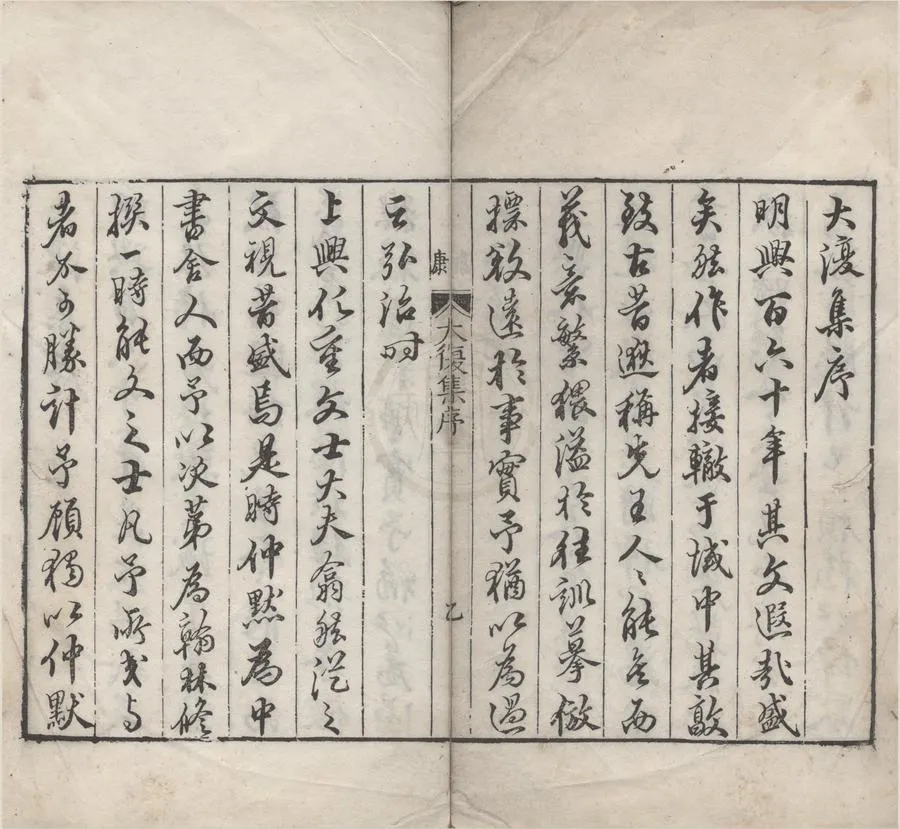 大復集序
明興百六十年其文遐哉盛
矣然作者接轍于域中其敲
致古昔遊稱先王人〻能言而
義意繁猥溢於往訓摹倣
摽敓遠於事實予猶以為過
之弘治時
上興化重文士大夫翕然從之
文視昔盛焉是時仲默為中
書舍人而予以次第為翰林修
撰一時能文之士凡予所交与
者不可勝計予顧獨以仲默
康
大復集序
乙